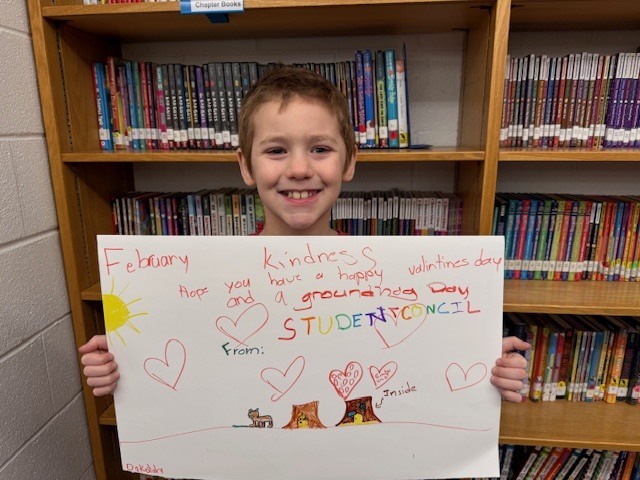 Chapter Books
February Kindness
Hope you have a happy valintines day
and a groundhog Day
From: STUDENTCONCIL
inside